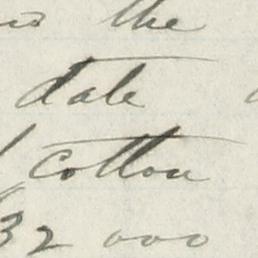 the
date
cotton
32 000